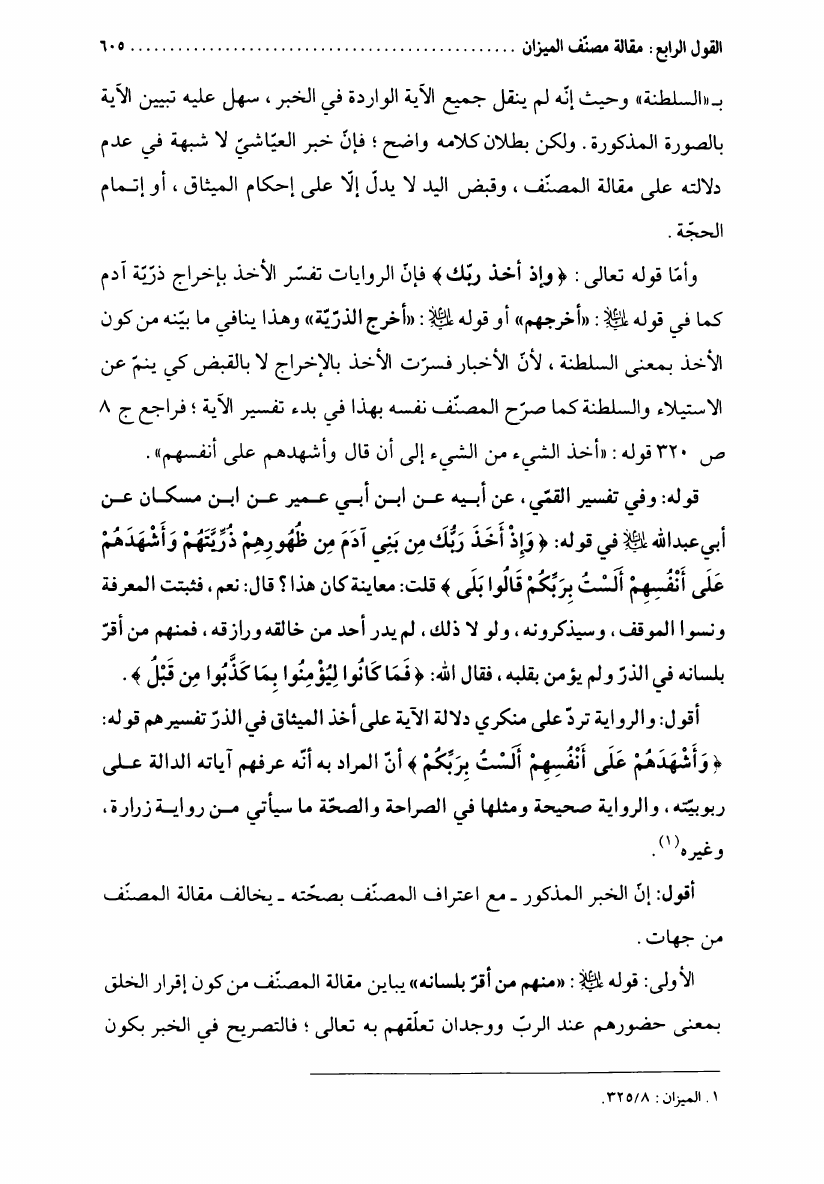 القول الرابع: مقالة مصنّف الميزان .................................................. ٦٠٥
بـ«السلطنة» وحيث إنّه لم ينقل جميع الآية الواردة في الخبر ، سهل عليه تبيين الآية
بالصورة المذكورة . ولكن بطلان كلامه واضح ؛ فإنّ خبر العيّاشيّ لا شبهة في عدم
دلالته على مقالة المصنّف ، وقبض اليد لا يدلّ إلّا على إحكام الميثاق ، أو إتـمام
الحجّة .
وأمّا قوله تعالى : ﴿ وإذ أخذ ربّك ﴾ فإنّ الروايات تفسّر الأخذ بإخراج ذرّيّة آدم
كما في قوله ﷺ : «أخرجهم» أو قوله ﷺ : «أخرج الذرّيّة» وهذا ينافي ما بيّنه من كون
الأخذ بمعنى السلطنة ، لأنّ الأخبار فسرّت الأخذ بالإخراج لا بالقبض كي ينمّ عن
الاستيلاء والسلطنة كما صرّح المصنّف نفسه بهذا في بدء تفسير الآية ؛ فراجع ج ٨
ص ٣٢٠ قوله : «أخذ الشيء من الشيء إلى أن قال وأشهدهم على أنفسهم» .
قوله: وفي تفسير القمّي، عن أبـيه عـن ابـن أبـي عـمير عـن ابـن مسكـان عـن
أبي عبدالله ﷺ في قوله: ﴿ وَإِذْ أَخَذَ رَبُّكَ مِن بَنِي آدَمَ مِن ظُهُورِهِمْ ذُرِّيَّتَهُمْ وَأَشْهَدَهُمْ
عَلَى أَنْفُسِهِمْ أَلَسْتُ بِرَبِّكُمْ قَالُوا بَلَى ﴾ قلت: معاينة كان هذا ؟ قال: نعم ، فثبتت المعرفة
ونسوا الموقف، وسيذكرونه، ولو لا ذلك، لم يدر أحد من خالقه ورازقه ، فمنهم من أقرّ
بلسانه في الذرّ ولم يؤمن بقلبه، فقال الله: ﴿ فَمَا كَانُوا لِيُؤْمِنُوا بِمَا كَذَّبُوا مِن قَبْلُ ﴾.
أقول: والرواية تردّ على منكري دلالة الآية على أخذ الميثاق في الذرّ تفسيرهم قوله:
﴿ وَأَشْهَدَهُمْ عَلَى أَنْفُسِهِمْ أَلَسْتُ بِرَبِّكُمْ ﴾ أنّ المراد به أنّه عرفهم آياته الدالة عـلـى
ربوبيّته، والرواية صحيحة ومثلها في الصراحة والصحّة ما سيأتي مـن روايـة زرارة،
وغيره(١).
أقول: إنّ الخبر المذكور ـ مع اعتراف المصنّف بصحّته ـ يخالف مقالة المصنّف
من جهات .
الأولى: قوله ﷺ : «منهم من أقرّ بلسانه» يباين مقالة المصنّف من كون إقرار الخلق
بمعنى حضورهم عند الربّ ووجدان تعلّقهم به تعالى ؛ فالتصريح في الخبر بكون
١ . الميزان : ٣٢٥/٨.